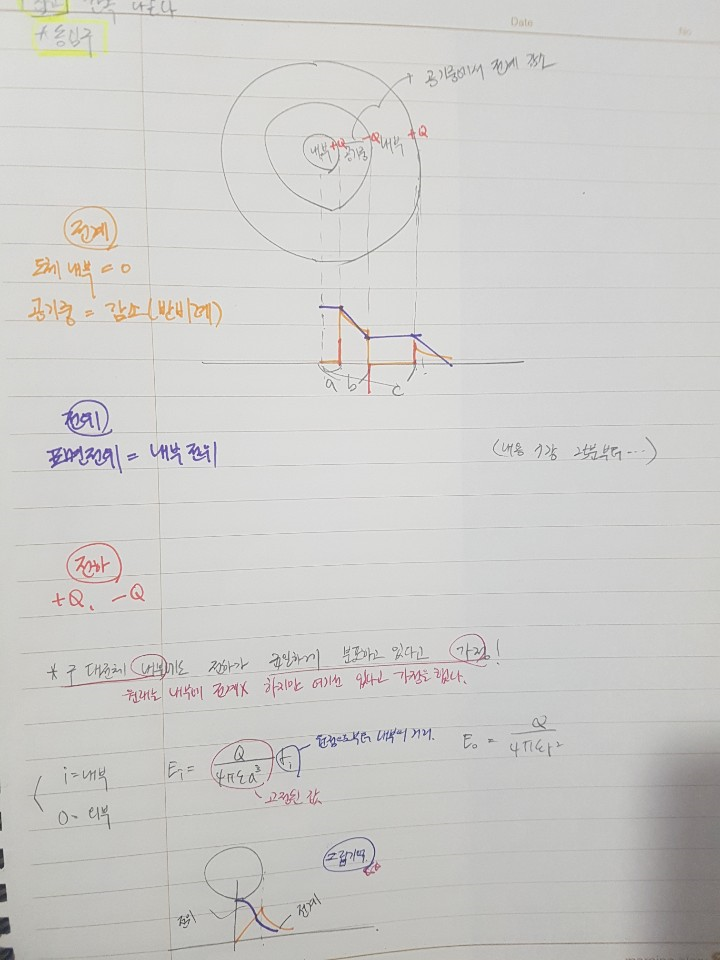 Date
No
* 동심구
공기중에서 전계 감소
내부 +Q 공기중 -Q 내부 +Q
전계
도체 내부 = 0
공기중 = 감소 (반비례)
a b c
전위
표면전위 = 내부 전위
(내용 1강 25분부터…)
전하
+Q, -Q
* 구 대전체 내부에도 전하가 균일하게 분포하고 있다고 가정!
원래는 내부에 전계X 하지만 여기선 있다고 가정을 한다.
i = 내부
Ei = Q/4πεa³ ri
원점으로부터 내부의 거리.
E₀ = Q/4πεr²
0 = 외부
고정된 값
그림기억.
전위
전계